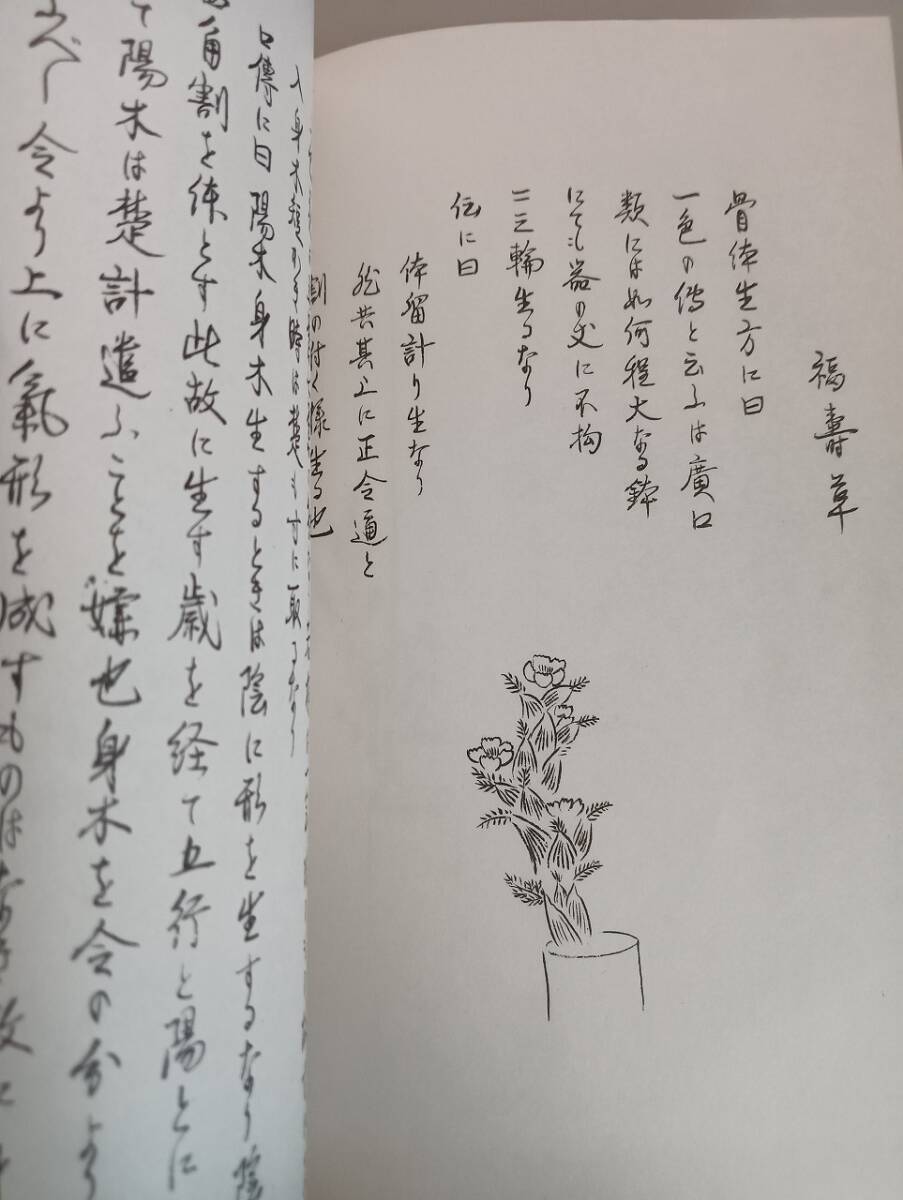 福壽草
骨体生方に曰
一色の傳と云ふは廣口
類には如何程大なる鉢
にても器の丈に不拘
二三輪生るなり
伝に曰
体留計り生なり
然共其上に正令通と
割の付く様生る也
入身木
口傳に曰陽木身木生するときは陰に形を生するなり陰
角割を体とす此故に生す歳を経て五行と陽とに
て陽木は楚計遣ふことを嫌也身木を令の分より
べし令より上に氣形を成すものはなき故に